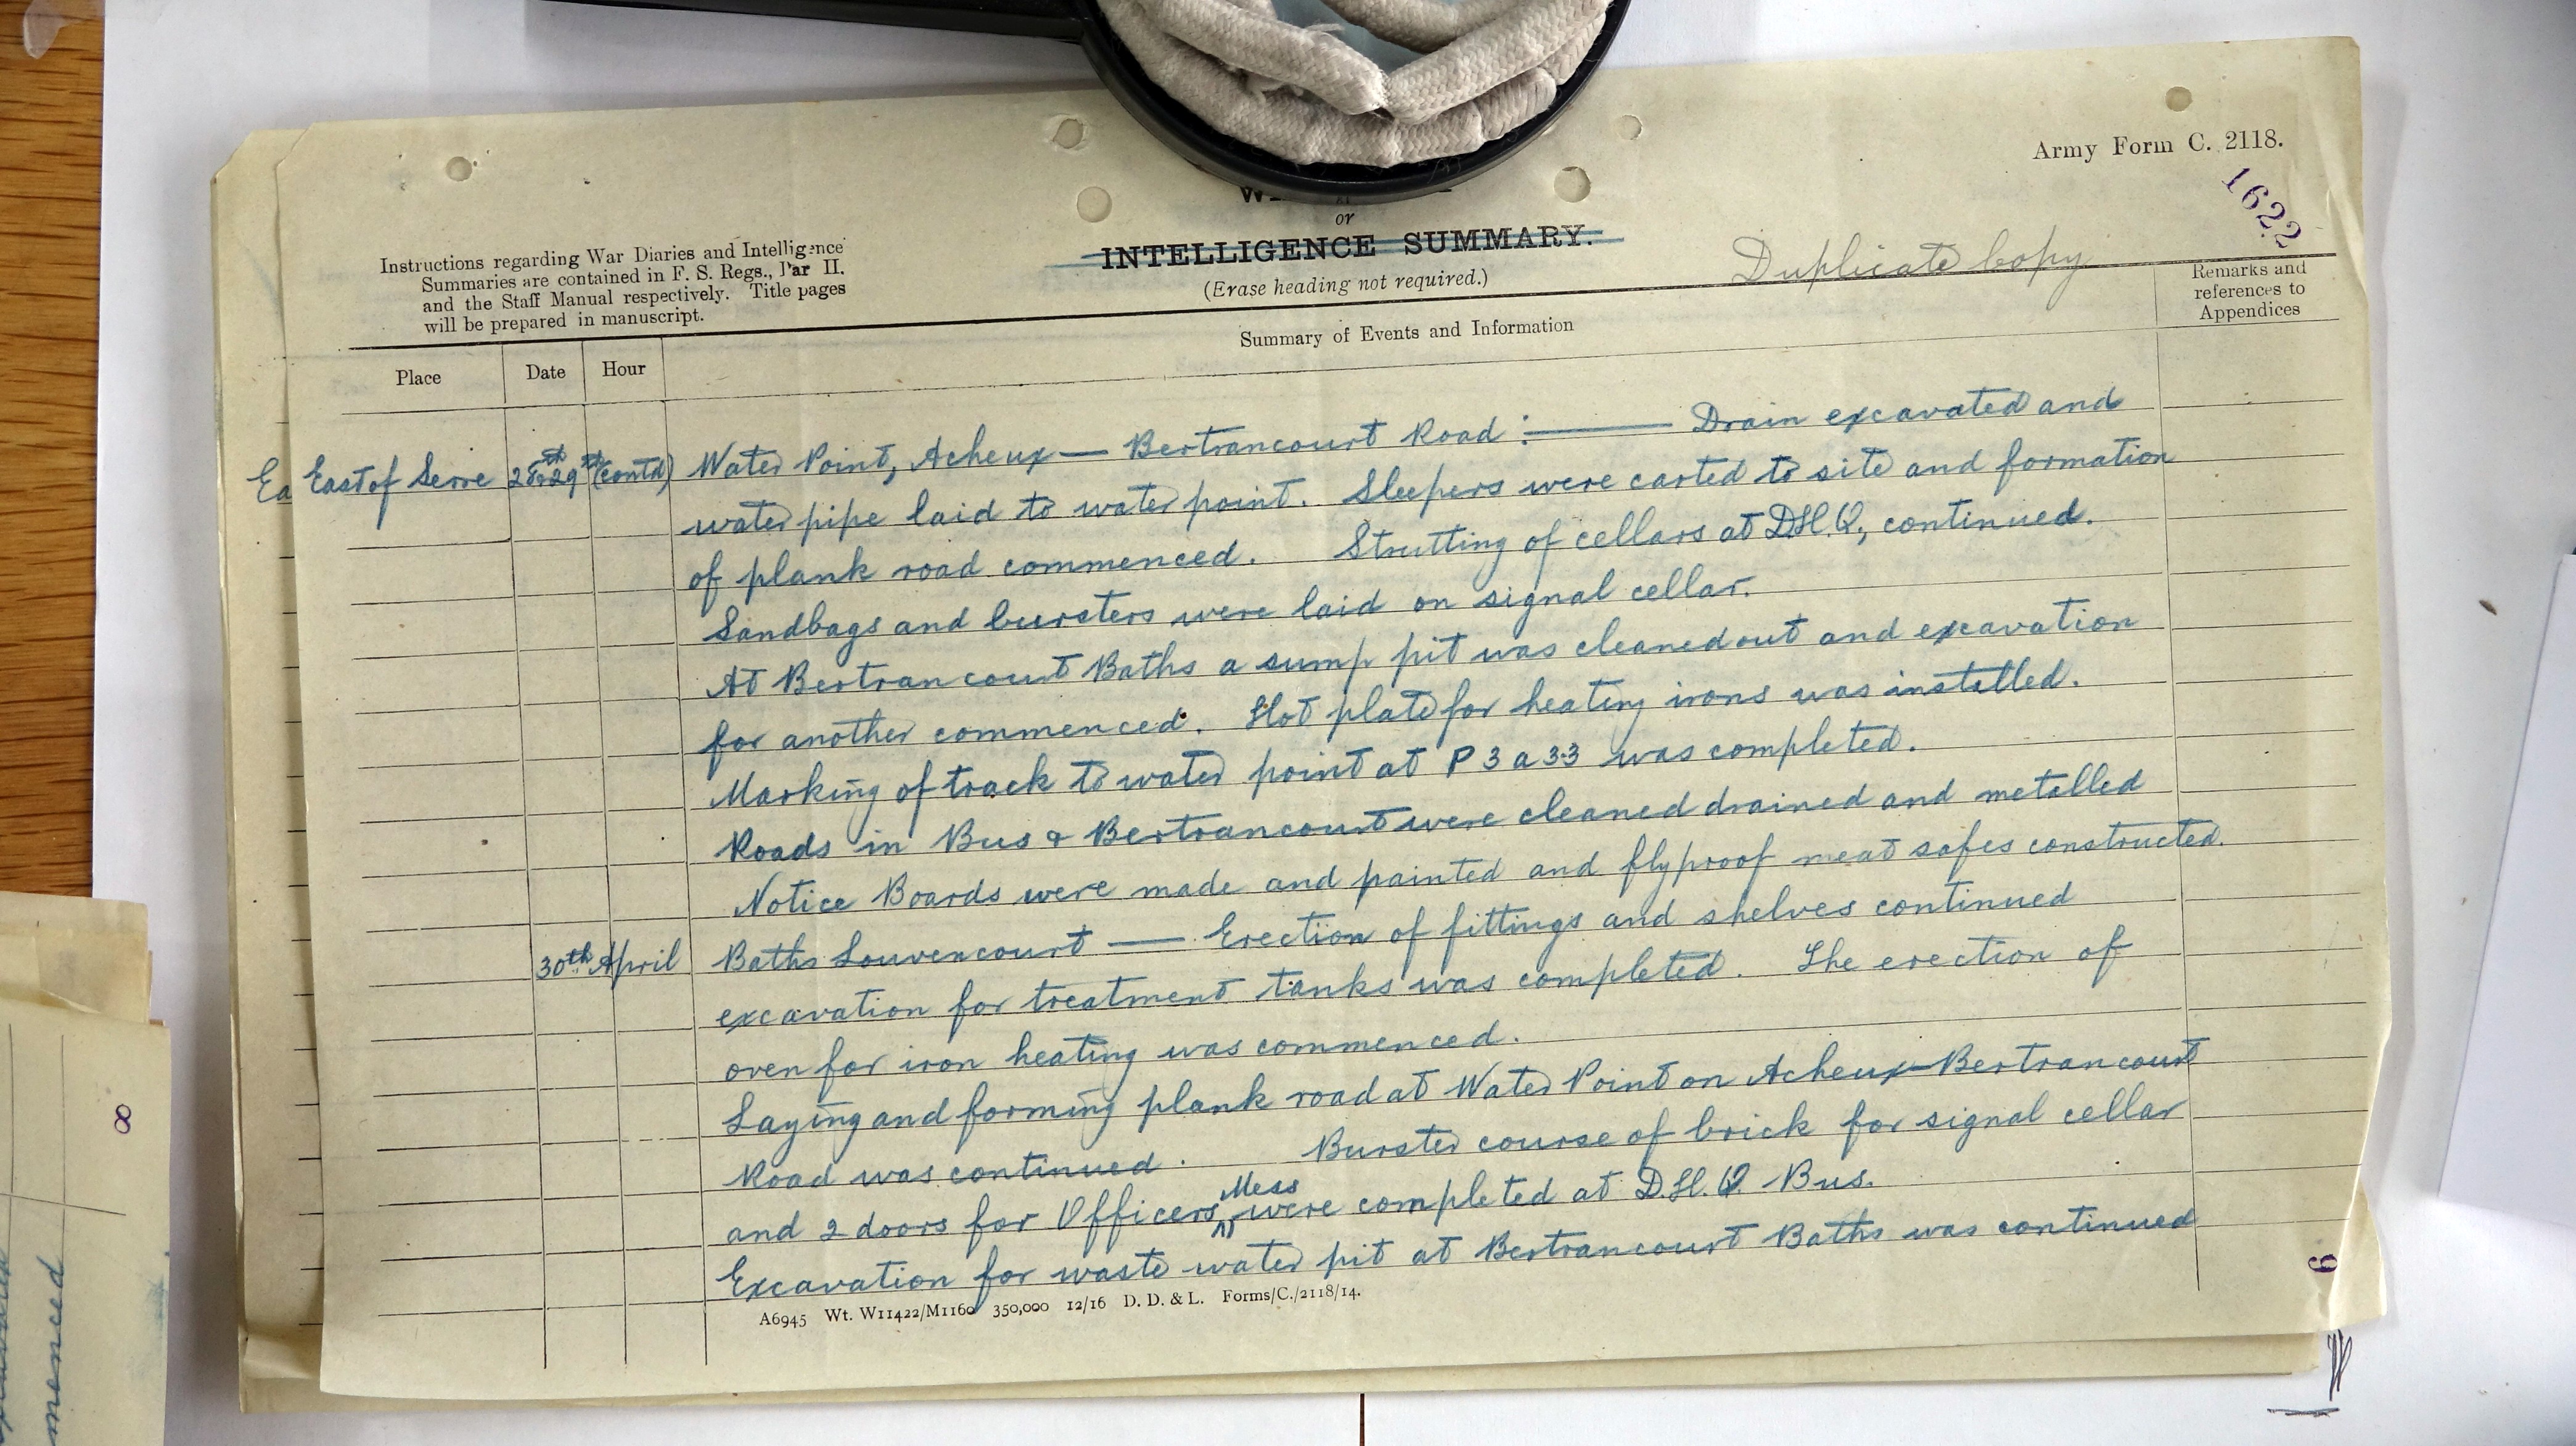 Army Form C. 2118.
1622
or
INTELLIGENCE SUMMARY.
(Erase heading not required.)
Duplicate Copy
Instructions regarding War Diaries and Intelligence
Summaries are contained in F. S. Regs., Part II.
and the Staff Manual respectively. Title pages
will be prepared in manuscript.
Remarks and
references to
Appendices
Summary of Events and Information
Place Date Hour
Ea East of Serre 28th-29th (contd) Water Point, Acheux — Bertrancourt Road :— Drain excavated and
water pipe laid to water point. Sleepers were carted to site and formation
of plank road commenced. Strutting of cellars at D.H.Q, continued.
Sandbags and bursters were laid on signal cellar.
At Bertrancourt Baths a sump pit was cleaned out and excavation
for another commenced. Hot plate for heating irons was installed.
Marking of track to water point at P 3 a 3.3 was completed.
Roads in Bus & Bertrancourt were cleaned drained and metalled
Notice Boards were made and painted and flyproof meat safes constructed.
30th April Baths Louvencourt — Erection of fittings and shelves continued
excavation for treatment tanks was completed. The erection of
oven for iron heating was commenced.
Laying and forming plank road at Water Point on Acheux-Bertrancourt
Road was continued. Burster course of brick for signal cellar
and 2 doors for Officers Mess were completed at D.H.Q. Bus.
Excavation for waste water pit at Bertrancourt Baths was continued
A6945 Wt. W11422/M1160 350,000 12/16 D. D. & L. Forms/C./2118/14.
9
8
menced